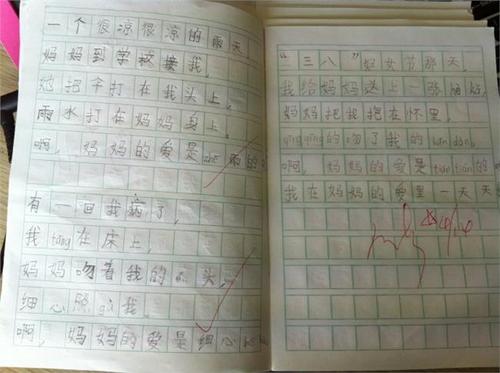 一个很凉很凉的雨天
妈妈到学校接我,
她把伞打在我头上,
雨水打在妈妈身上。
啊,妈妈的爱是 雨的
有一回我病了,
我tǎng在床上,
妈妈吻着我的 头,
细心照gù我。
啊,妈妈的爱是细心
“三八”妇女节那天,
我给妈妈送上一张
妈妈把我抱在怀里。
qīngqīng的吻了我的
啊,妈妈的爱是tián tián的
我在妈妈的爱里一天天